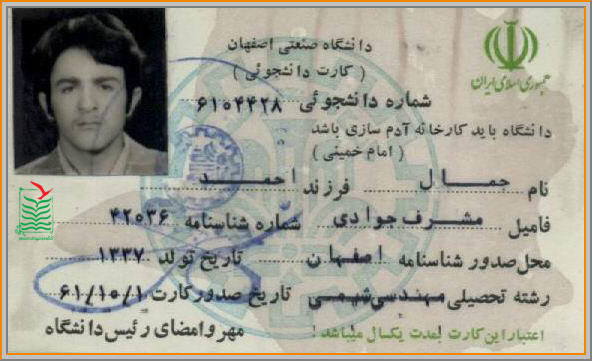 جمهوری اسلامی ایران
دانشگاه صنعتی اصفهان
( کارت دانشجوئی )
شماره دانشجوئی ۶۱۰۴۴۲۸
دانشگاه باید کارخانه آدم سازی باشد
( امام خمینی )
نام جمال فرزند احمد
فامیل مشرف جوادی شماره شناسنامه ۴۲۰۳۶
محل صدور شناسنامه اصفهان تاریخ تولد ۱۳۳۷
رشته تحصیلی مهندسی شیمی تاریخ صدور کارت ۶۱/۱۰/۱
اعتبار این کارت بمدت یکسال میباشد مهر و امضای رئیس دانشگاه